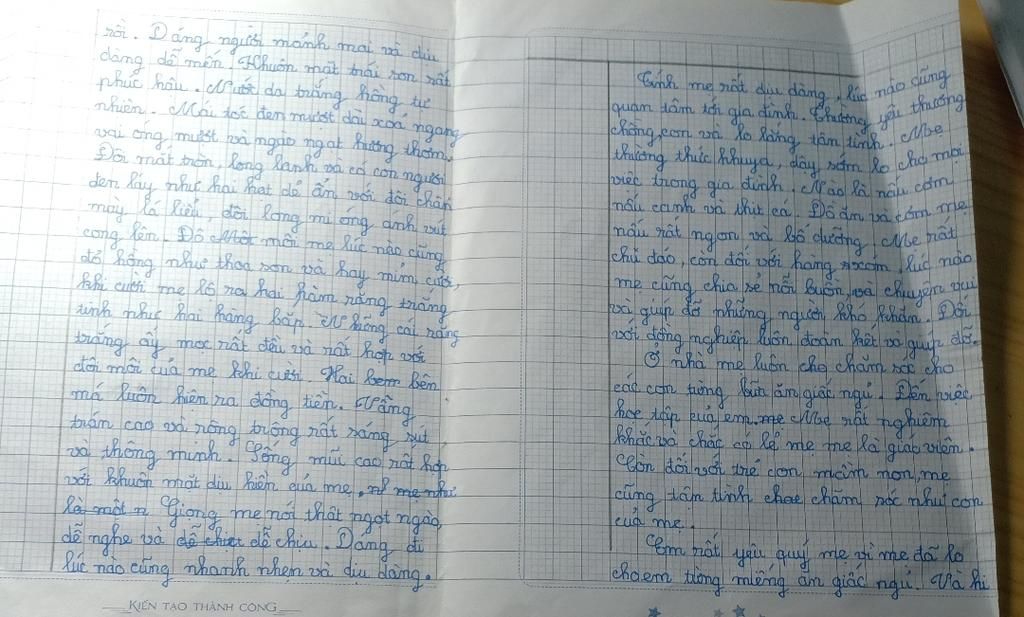 rồi. Dáng người mảnh mai và dịu
dàng dễ mến. Khuôn mặt trái xon rất
phúc hậu. Nước da trắng hồng tự
nhiên. Mái tóc đen mượt dài xoã ngang
vai óng mượt và ngào ngạt hương thơm.
Đôi mắt tròn, long lanh và có con người
đen láy như hai hạt đỗ ẩn với đôi chân
mày lá liễu, đôi lông mi óng ánh vút
cong lên. Đô Một môi mẹ lúc nào cũng
đỏ hồng như thoa son và hay mỉm cười,
khi cười mẹ lộ ra hai hàm răng trắng
tinh như hai hàng bắp. Những cái răng
trắng ấy mọc rất đều và rất hợp với
đôi môi của mẹ khi cười. Hai bem bên
má luôn hiện ra đồng tiền. Vầng
trán cao và rộng trông rất sáng sủt
và thông minh. Sống mũi cao rất hợp
với khuôn mặt dịu hiền của mẹ. mẹ như
là một n Giọng mẹ nói thật ngọt ngào,
dễ nghe và dễ chiu dễ chịu. Dáng đi
lúc nào cũng nhanh nhẹn và dịu dàng.
KIẾN TẠO THÀNH CÔNG
Tính mẹ rất dịu dàng, lúc nào cũng
quan tâm tới gia đình. Thương yêu thương
chồng, con và lo lắng tận tình. Mẹ
thường thức khuya, dậy sớm lo cho mọi
việc trong gia đình. Nào là nấu cơm
nấu canh và thịt cá. Đồ ăn và cơm mẹ
nấu rất ngon và bổ dưỡng. Mẹ rất
chu đáo, còn đối với hàng xóm, lúc nào
mẹ cũng chia sẻ nỗi buồn, và chuyện vui
và giúp đỡ những người khó khăn. Đối
với đồng nghiệp luôn đoàn kết và giúp đỡ.
Ở nhà mẹ luôn cho chăm sóc cho
các con từng bữa ăm giấc ngủ. Đến việc
học tập của em. mẹ Mẹ rất nghiêm
khắc và chắc có lẽ mẹ mẹ là giáo viên.
Còn đối với trẻ con mầm non, mẹ
cũng tận tình chăm sóc như con
của mẹ.
Em rất yêu quý mẹ vì mẹ đã lo
cho em từng miếng ăn giấc ngủ. Và hi